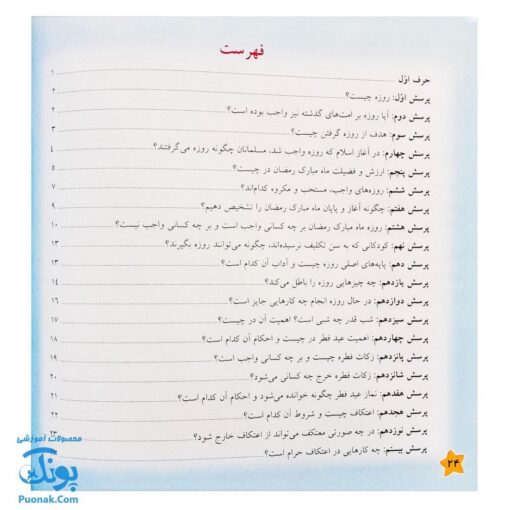 فهرست
حرف اوّل ۱
پرسش اوّل: روزه چیست؟ ۲
پرسش دوم: آیا روزه بر امت‌های گذشته نیز واجب بوده است؟ ۲
پرسش سوم: هدف از روزه گرفتن چیست؟ ۳
پرسش چهارم: در آغاز اسلام که روزه واجب شد، مسلمانان چگونه روزه می‌گرفتند؟ ۴
پرسش پنجم: ارزش و فضیلت ماه مبارک رمضان در چیست؟ ۵
پرسش ششم: روزه‌های واجب، مستحب و مکروه کدام‌اند؟ ۷
پرسش هفتم: چگونه آغاز و پایان ماه مبارک رمضان را تشخیص دهیم؟ ۹
پرسش هشتم: روزه ماه مبارک رمضان بر چه کسانی واجب است و بر چه کسانی واجب نیست؟ ۱۰
پرسش نهم: کودکانی که به سن تکلیف نرسیده‌اند، چگونه می‌توانند روزه بگیرند؟ ۱۳
پرسش دهم: پایه‌های اصلی روزه چیست و آداب آن کدام است؟ ۱۳
پرسش یازدهم: چه چیزهایی روزه را باطل می‌کند؟ ۱۴
پرسش دوازدهم: در حال روزه انجام چه کارهایی جایز است؟ ۱۶
پرسش سیزدهم: شب قدر چه شبی است؟ اهمیت آن در چیست؟ ۱۷
پرسش چهاردهم: اهمیت عید فطر در چیست و احکام آن کدام است؟ ۱۸
پرسش پانزدهم: زکات فطره چیست و بر چه کسانی واجب است؟ ۱۹
پرسش شانزدهم: زکات فطره خرج چه کسانی می‌شود؟ ۲۰
پرسش هفدهم: نماز عید فطر چگونه خوانده می‌شود و احکام آن کدام است؟ ۲۱
پرسش هجدهم: اعتکاف چیست و شروط آن کدام است؟ ۲۲
پرسش نوزدهم: در چه صورتی معتکف می‌تواند از اعتکاف خارج شود؟ ۲۳
پرسش بیستم: چه کارهایی در اعتکاف حرام است؟
۲۴
محصولات آموزشی
پونک
Puonak.Com